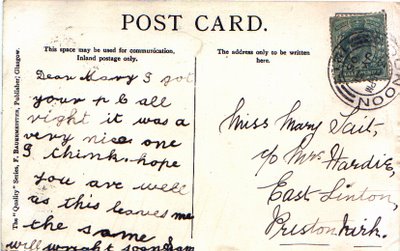 POST CARD.
This space may be used for communication.
Inland postage only.
The address only to be written
here.
The "Quality" Series, F. Bauermeister, Publisher, Glasgow.
Dear Mary I got
your p c all
right it was a
very nice one
I think. hope
you are well
as this leaves me
the same
will wright soon
Miss Mary Tait,
c/o Mrs Hardie,
East Linton,
Prestonkirk.
UNOON